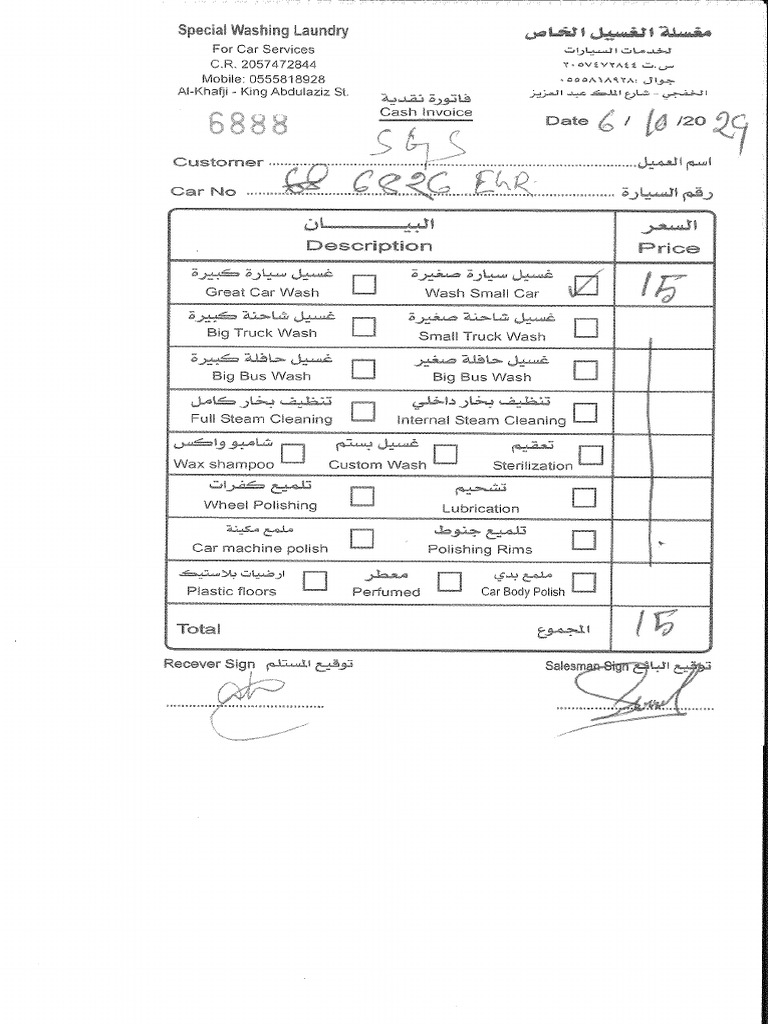 Special Washing Laundry
For Car Services
C.R. 2057472844
Mobile: 0555818928
Al-Khafji - King Abdulaziz St.
مغسلة الغسيل الخاص
لخدمات السيارات
س.ت ٢٠٥٧٤٧٢٨٤٤
جوال: ٠٥٥٥٨١٨٩٢٨
الخفجي - شارع الملك عبد العزيز
فاتورة نقدية
Cash Invoice
6888
Date 6 / 10 /20 24
Customer SGS اسم العميل
Car No 6826 EHR رقم السيارة
البيـــــان السعر
Description Price
غسيل سيارة كبيرة غسيل سيارة صغيرة
Great Car Wash Wash Small Car 15
غسيل شاحنة كبيرة غسيل شاحنة صغيرة
Big Truck Wash Small Truck Wash
غسيل حافلة كبيرة غسيل حافلة صغير
Big Bus Wash Big Bus Wash
تنظيف بخار كامل تنظيف بخار داخلي
Full Steam Cleaning Internal Steam Cleaning
شامبو واكس غسيل بستم تعقيم
Wax shampoo Custom Wash Sterilization
تلميع كفرات تشحيم
Wheel Polishing Lubrication
ملمع مكينة تلميع جنوط
Car machine polish Polishing Rims
ارضيات بلاستيك معطر ملمع بدي
Plastic floors Perfumed Car Body Polish
Total المجموع 15
Recever Sign توقيع المستلم Salesman Sign توقيع البائع